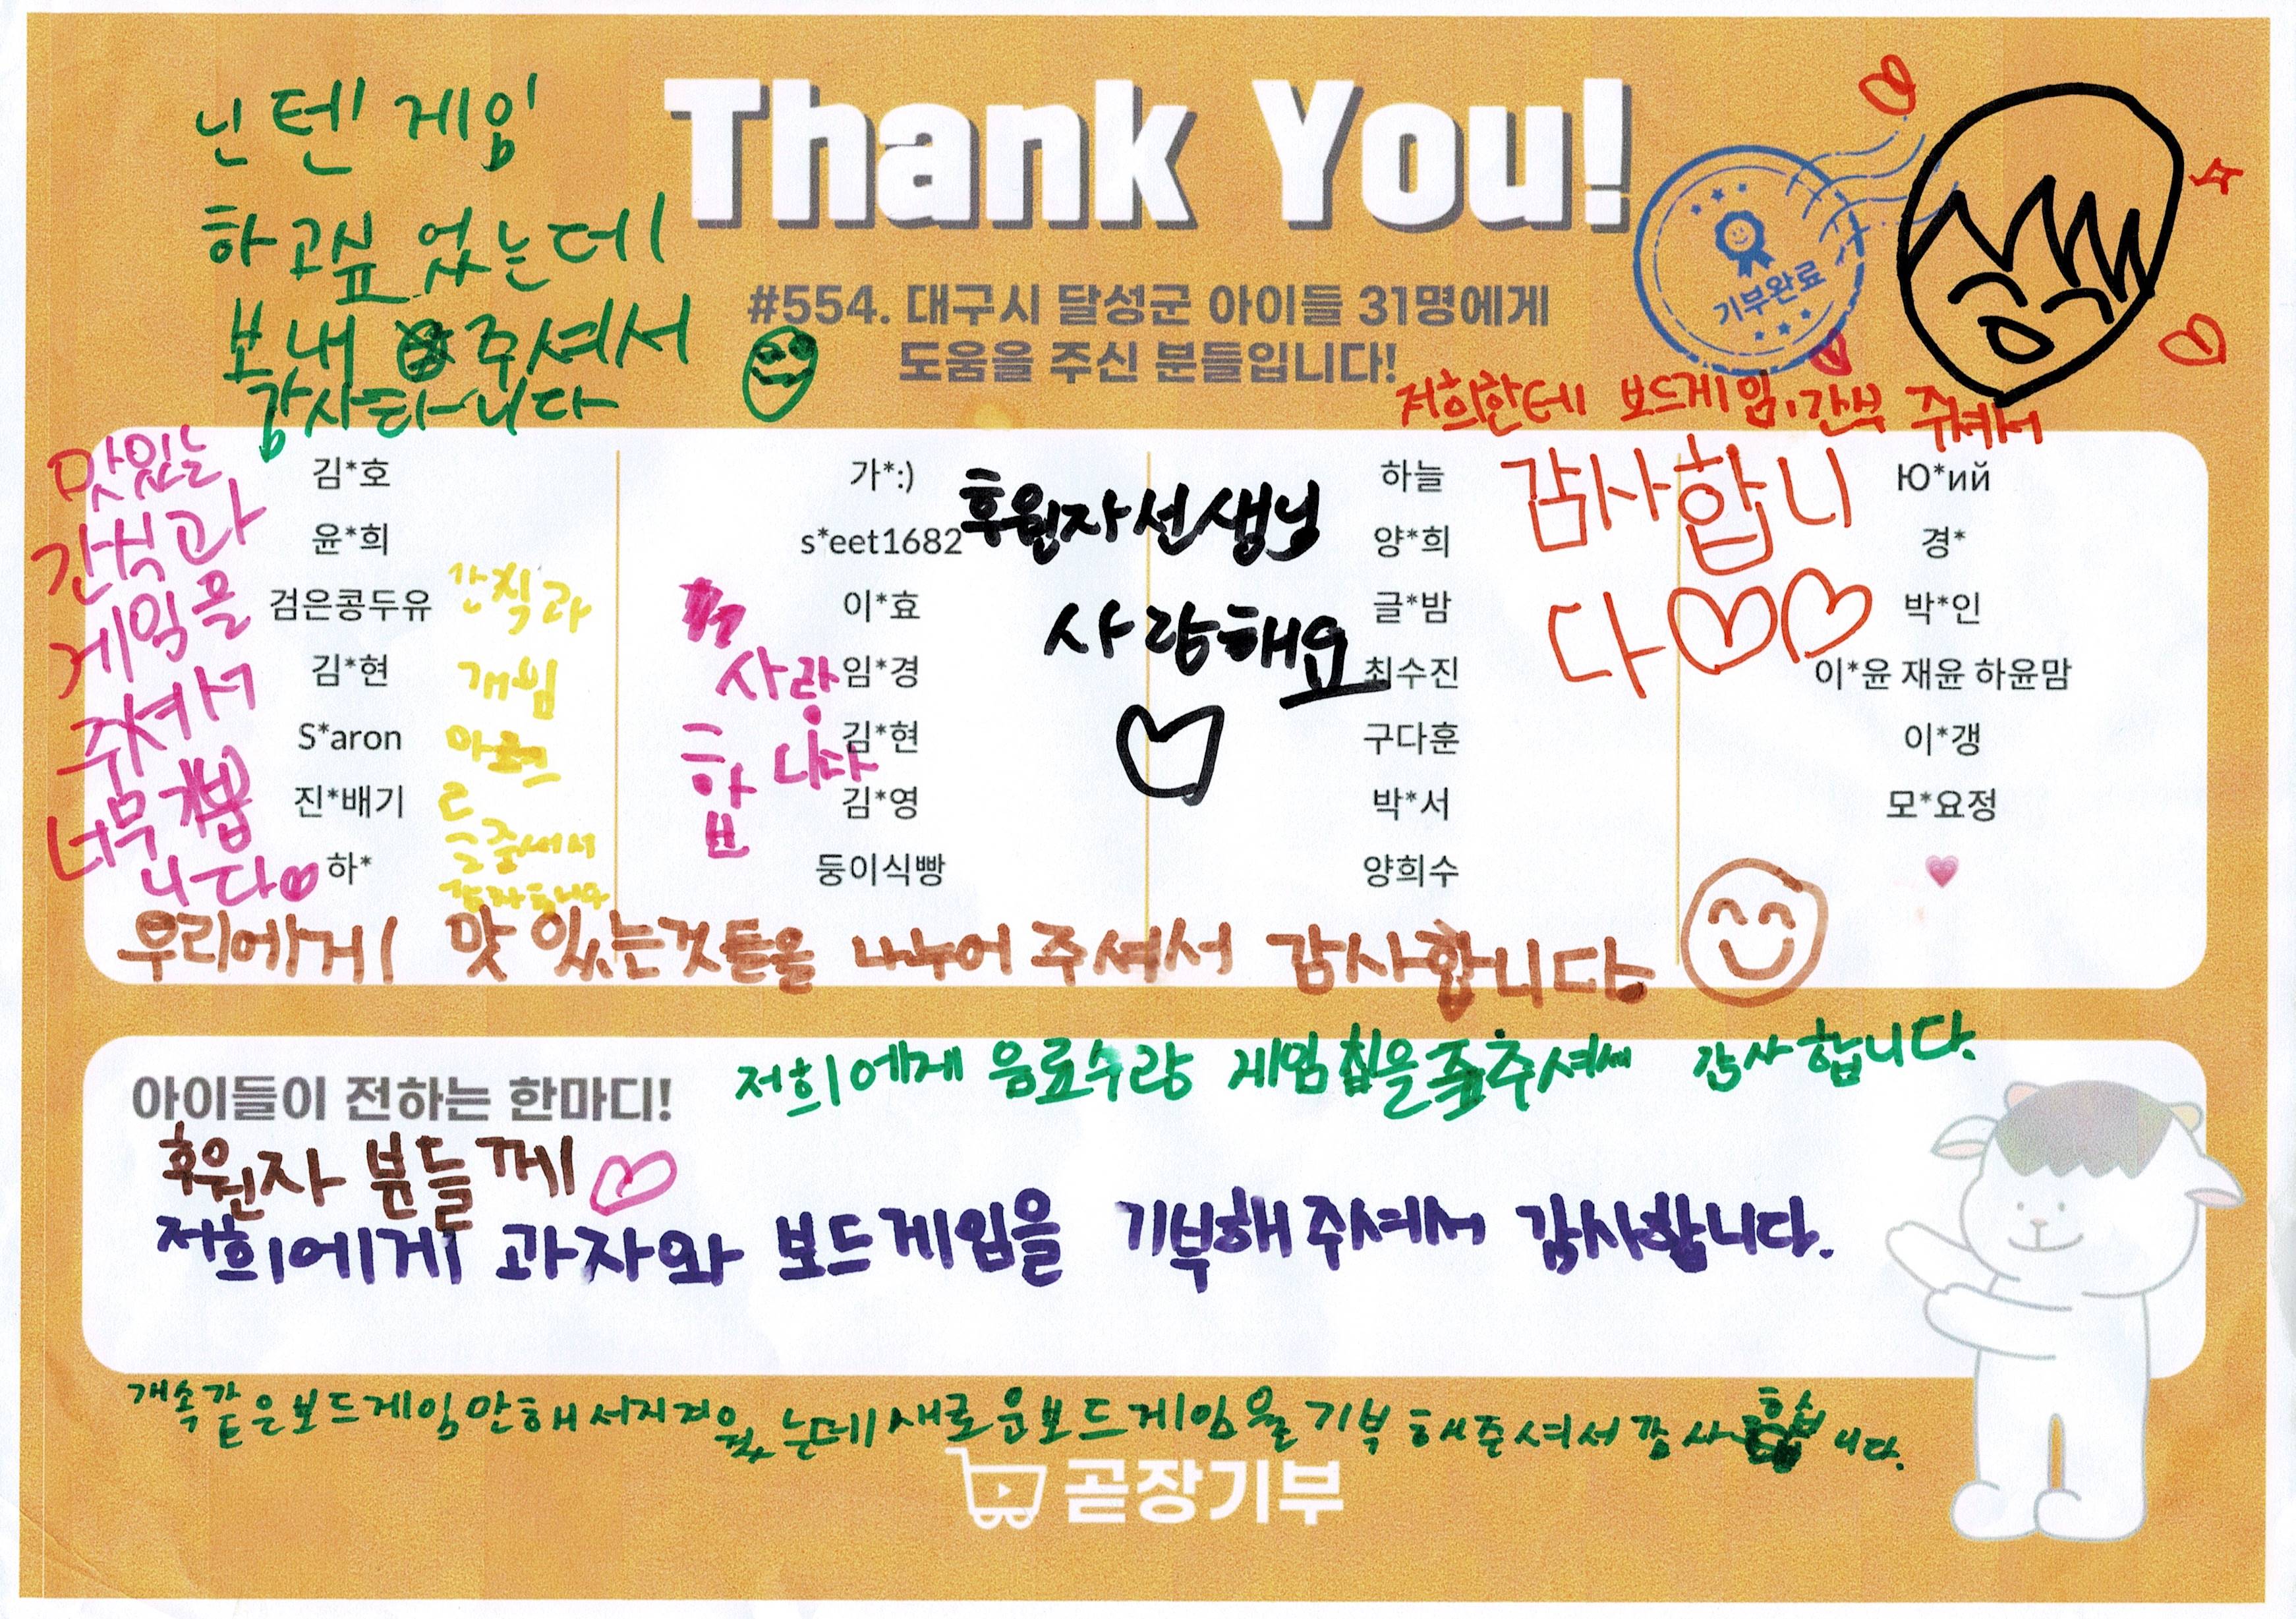 닌텐 게임
하고싶었는데
보내 주셔서
감사하니다
Thank You!
#554. 대구시 달성군 아이들 31명에게
도움을 주신 분들입니다!
기부완료
저희한테 보드게임, 간식 주셔서
감사합니
다
맛있는
간식과
게임을
줘셔서
너무
니다
김*호
윤*희
검은콩두유
김*현
S*aron
진*배기
하*
간칙과
개임
감자합니다
가*:)
s*eet1682
이*효
임*경
김*현
김*영
둥이식빵
사랑
합
니다
후원자선생님
사랑해요
하늘
양*희
글*밤
최수진
구다훈
박*서
양희수
Ю*ий
경*
박*인
이*윤 재윤 하윤맘
이*갱
모*요정
우리에게 맛있는것들을 나누어 주셔서 감사합니다
아이들이 전하는 한마디!
저희에게 음료수랑 게임칩을 주셔서 감사합니다.
후원자 분들께
저희에게 과자와 보드게임을 기부해주셔서 감사합니다.
개속같은보드게임만해서지겨웠는데새로운보드게임을기부해준셔서감사합니다.
곧장기부